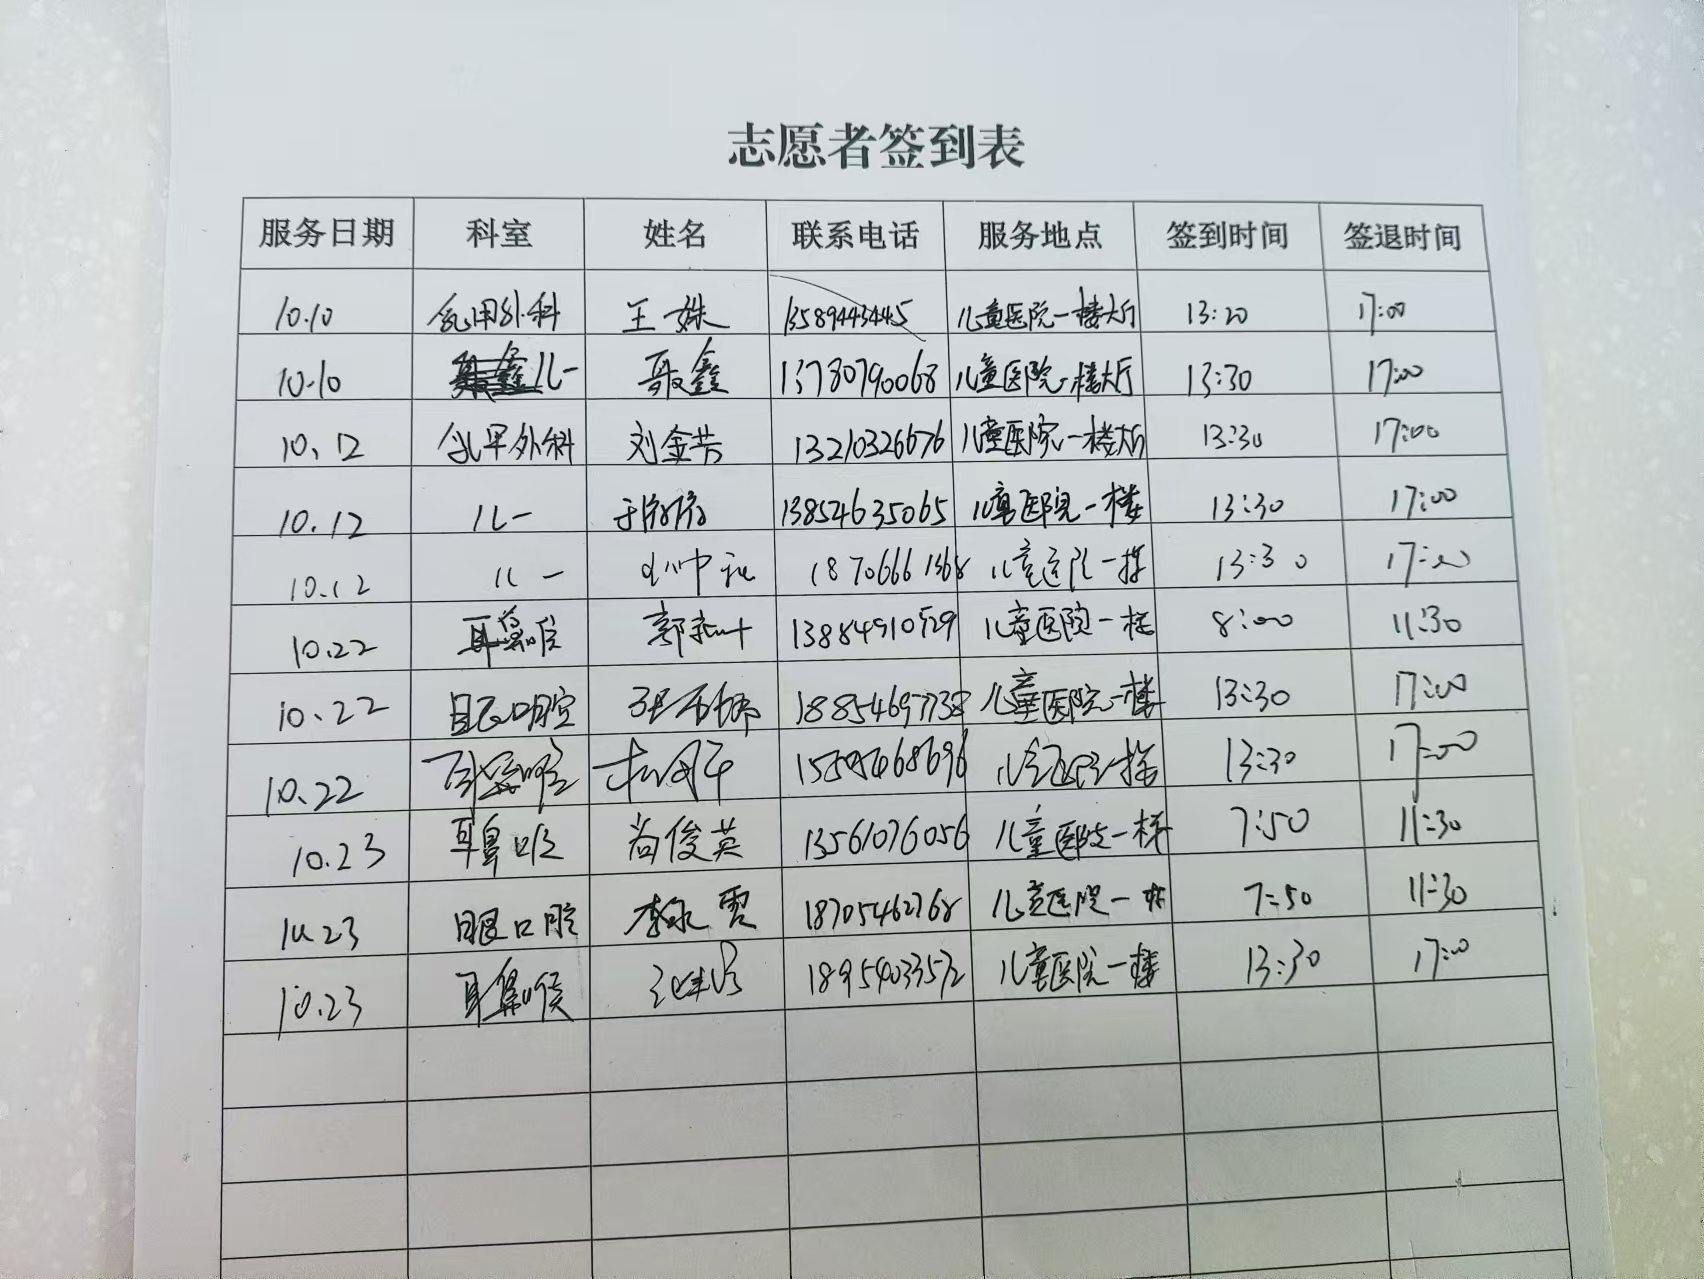 志愿者签到表
服务日期 科室 姓名 联系电话 服务地点 签到时间 签退时间
10.10 乳甲外科 王姝 13589443445 儿童医院一楼大厅 13:20 17:00
10.10 儿一 鑫 13780790068 儿童医院一楼大厅 13:30 17:00
10.12 乳甲外科 刘金芳 13210326676 儿童医院一楼大厅 13:30 17:00
10.12 儿一 13854635065 儿童医院一楼 13:30 17:00
10.12 儿一 儿童医院一楼 13:30 17:00
10.22 耳鼻喉 郭 儿童医院一楼 8:00 11:30
10.22 口腔 儿童医院一楼 13:30 17:00
10.22 耳鼻喉 儿童医院一楼 13:30 17:00
10.23 耳鼻喉 尚俊英 13561076056 儿童医院一楼 7:50 11:30
10.23 眼口腔 李永霞 18705462768 儿童医院一楼 7:50 11:30
10.23 耳鼻喉 18954033572 儿童医院一楼 13:30 17:00